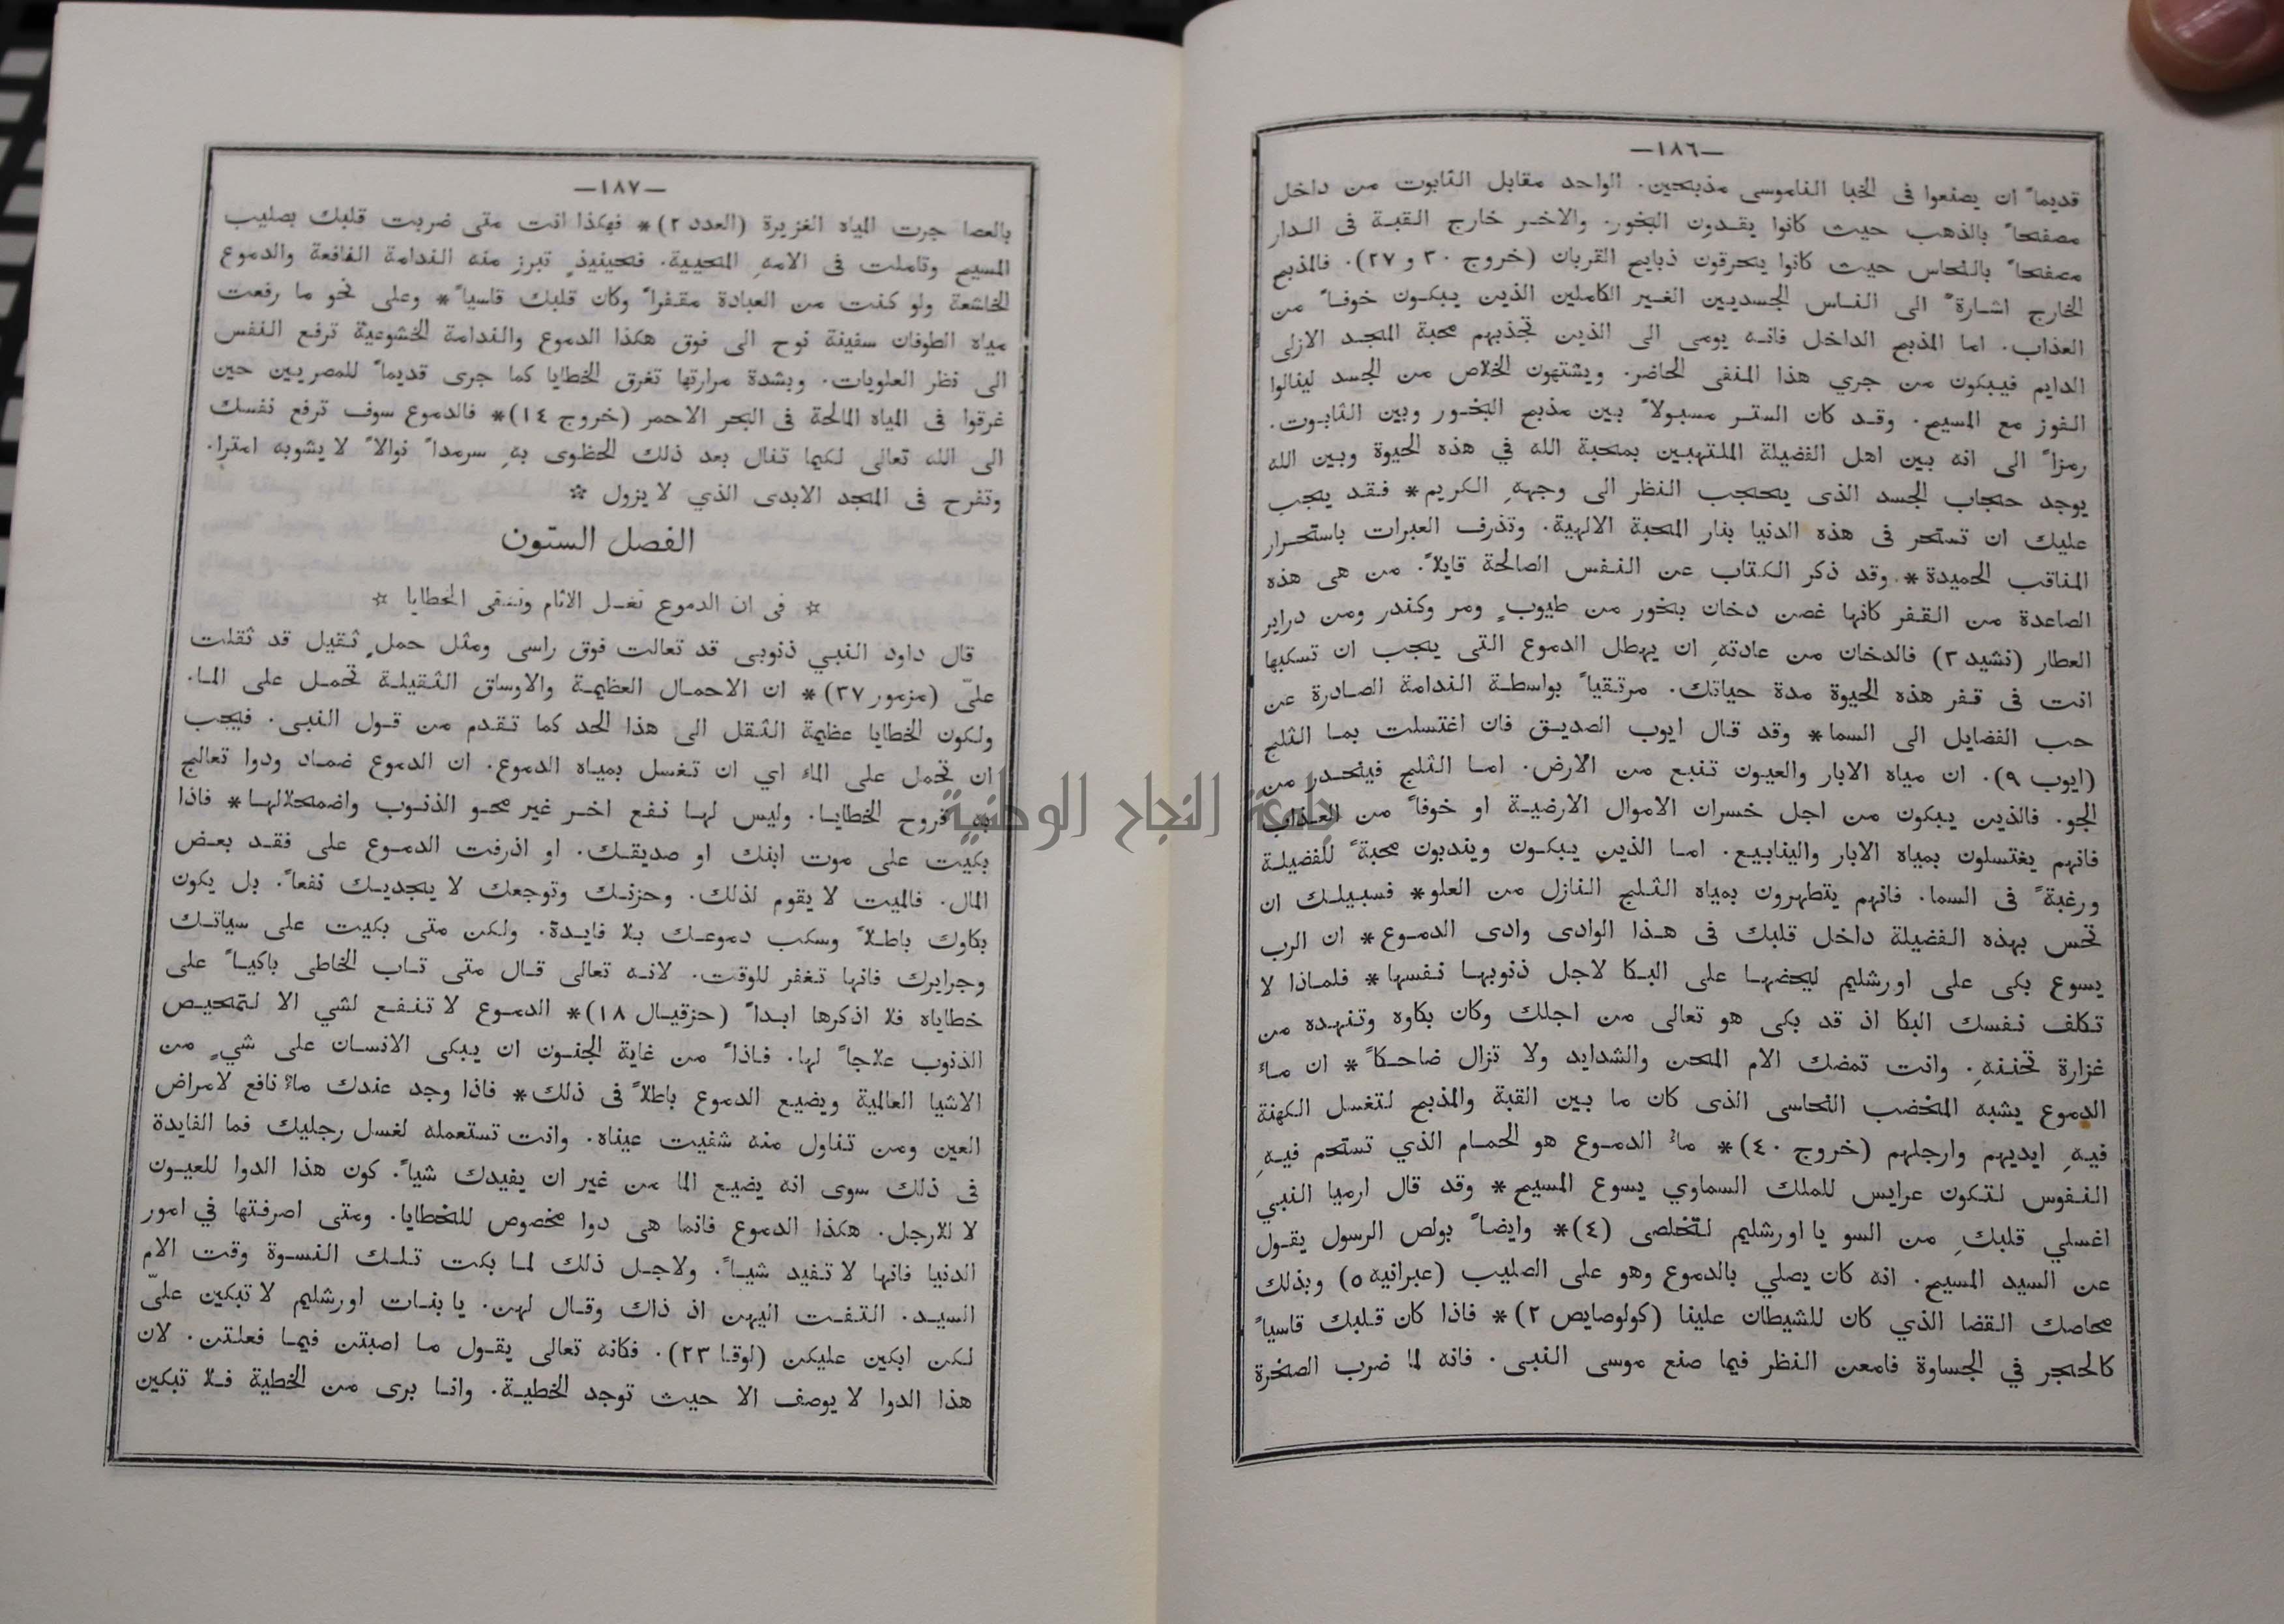 —١٨٦—
قديماً ان يصنعوا فى الخبا الناموسى مذبحين. الواحد مقابل التابوت من داخل
مصفحاً بالذهب حيث كانوا يقدون البخور. والاخر خارج القبة فى الدار
مصفحاً بالنحاس حيث كانوا يحرقون ذبايح القربان (خروج ٣٠ و ٢٧). فالمذبح
الخارج اشارةً الى الناس الجسديين الغير الكاملين الذين يبكون خوفاً من
العذاب. اما المذبح الداخل فانه يومى الى الذين تجذبهم محبة المجد الازلى
الدايم فيبكون من جري هذا المنفى الحاضر. ويشتهون الخلاص من الجسد لينالوا
الفوز مع المسيح. وقد كان الستر مسبولاً بين مذبح البخور وبين التابوت.
رمزاً الى انه بين اهل الفضيلة الملتهبين بمحبة الله في هذه الحيوة وبين الله
يوجد حجاب الجسد الذى يحجب النظر الى وجههِ الكريم* فقد يجب
عليك ان تستحر فى هذه الدنيا بنار المحبة الالهية. وتذرف العبرات باستحرار
المناقب الحميدة* وقد ذكر الكتاب عن النفس الصالحة قايلاً. من هى هذه
الصاعدة من القفر كانها غصن دخان بخور من طيوبٍ ومر وكندر ومن دراير
العطار (نشيد ٣) فالدخان من عادتهِ ان يهطل الدموع التى يجب ان تسكبها
انت فى قفر هذه الحيوة مدة حياتك. مرتقياً بواسطة الندامة الصادرة عن
حب الفضايل الى السما* وقد قال ايوب الصديق فان اغتسلت بما الثلج
(ايوب ٩). ان مياه الابار والعيون تنبع من الارض. اما الثلج فينحدر من
الجو. فالذين يبكون من اجل خسران الاموال الارضية او خوفاً من العذاب
فانهم يغتسلون بمياه الابار والينابيع. اما الذين يبكون ويندبون محبةً للفضيلة
ورغبةً فى السما. فانهم يتطهرون بمياه الثلج النازل من العلو* فسبيلك ان
تحس بهذه الفضيلة داخل قلبك فى هذا الوادى وادى الدموع* ان الرب
يسوع بكى على اورشليم ليحضها على البكا لاجل ذنوبها نفسها* فلماذا لا
تكلف نفسك البكا اذ قد بكى هو تعالى من اجلك وكان بكاوه وتنهده من
غزارة تحننهِ. وانت تمضك الام المحن والشدايد ولا تزال ضاحكاً* ان ماء
الدموع يشبه المخضب النحاسى الذى كان ما بين القبة والمذبح لتغسل الكهنة
فيهِ ايديهم وارجلهم (خروج ٤٠)* ماءُ الدموع هو الحمام الذي تستحم فيهِ
النفوس لتكون عرايس للملك السماوي يسوع المسيح* وقد قال ارميا النبي
اغسلي قلبكِ من السو يا اورشليم لتخلصى (٤)* وايضاً بولص الرسول يقول
عن السيد المسيح. انه كان يصلي بالدموع وهو على الصليب (عبرانيه ٥) وبذلك
محاصك القضا الذي كان للشيطان علينا (كولوصايص ٢)* فاذا كان قلبك قاسياً
كالحجر في الجساوة فامعن النظر فيما صنع موسى النبى. فانه لما ضرب الصخرة
—١٨٧—
بالعصا جرت المياه الغزيرة (العدد ٢)* فهكذا انت متى ضربت قلبك بصليب
المسيح وتاملت فى الامهِ المحيية. فحينيذٍ تبرز منه الندامة النافعة والدموع
الخاشعة ولو كنت من العبادة مقفراً وكان قلبك قاسياً* وعلى نحو ما رفعت
مياه الطوفان سفينة نوح الى فوق هكذا الدموع والندامة الخشوعية ترفع النفس
الى نظر العلويات. وبشدة مرارتها تغرق الخطايا كما جرى قديماً للمصريين حين
غرقوا فى المياه المالحة فى البحر الاحمر (خروج ١٤)* فالدموع سوف ترفع نفسك
الى الله تعالى لكيما تنال بعد ذلك الحظوى بهِ سرمداً نوالاً لا يشوبه امترا.
وتفرح فى المجد الابدى الذي لا يزول ☆
الفصل الستون
☆ فى ان الدموع تغسل الاثام وتنقى الخطايا ☆
قال داود النبي ذنوبى قد تعالت فوق راسى ومثل حملٍ ثقيل قد ثقلت
علىّ (مزمور ٣٧)* ان الاحمال العظيمة والاوساق الثقيلة تحمل على الما.
ولكون الخطايا عظيمة الثقل الى هذا الحد كما تقدم من قول النبى. فيجب
ان تحمل على الماء اي ان تغسل بمياه الدموع. ان الدموع ضماد ودوا تعالج
به قروح الخطايا. وليس لها نفع اخر غير محو الذنوب واضمحلالها* فاذا
بكيت على موت ابنك او صديقك. او اذرفت الدموع على فقد بعض
المال. فالميت لا يقوم لذلك. وحزنك وتوجعك لا يجديك نفعاً. بل يكون
بكاوك باطلاً وسكب دموعك بلا فايدة. ولكن متى بكيت على سياتك
وجرايرك فانها تغفر للوقت. لانه تعالى قال متى تاب الخاطى باكياً على
خطاياه فلا اذكرها ابداً (حزقيال ١٨)* الدموع لا تنفع لشي الا لتمحيص
الذنوب علاجاً لها. فاذاً من غاية الجنون ان يبكى الانسان على شيٍ من
الاشيا العالمية ويضيع الدموع باطلاً فى ذلك* فاذا وجد عندك ماءٌ نافع لامراض
العين ومن تناول منه شفيت عيناه. وانت تستعمله لغسل رجليك فما الفايدة
فى ذلك سوى انه يضيع الما من غير ان يفيدك شياً. كون هذا الدوا للعيون
لا للارجل. هكذا الدموع فانما هى دوا مخصوص للخطايا. ومتى اصرفتها في امور
الدنيا فانها لا تفيد شياً. ولاجل ذلك لما بكت تلك النسوة وقت الام
السيد. التفت اليهن اذ ذاك وقال لهن. يا بنات اورشليم لا تبكين علىّ
لكن ابكين عليكن (لوقا ٢٣). فكانه تعالى يقول ما اصبتن فيما فعلتن. لان
هذا الدوا لا يوصف الا حيث توجد الخطية. وانا برى من الخطية فلا تبكين
جامعة النجاح الوطنية